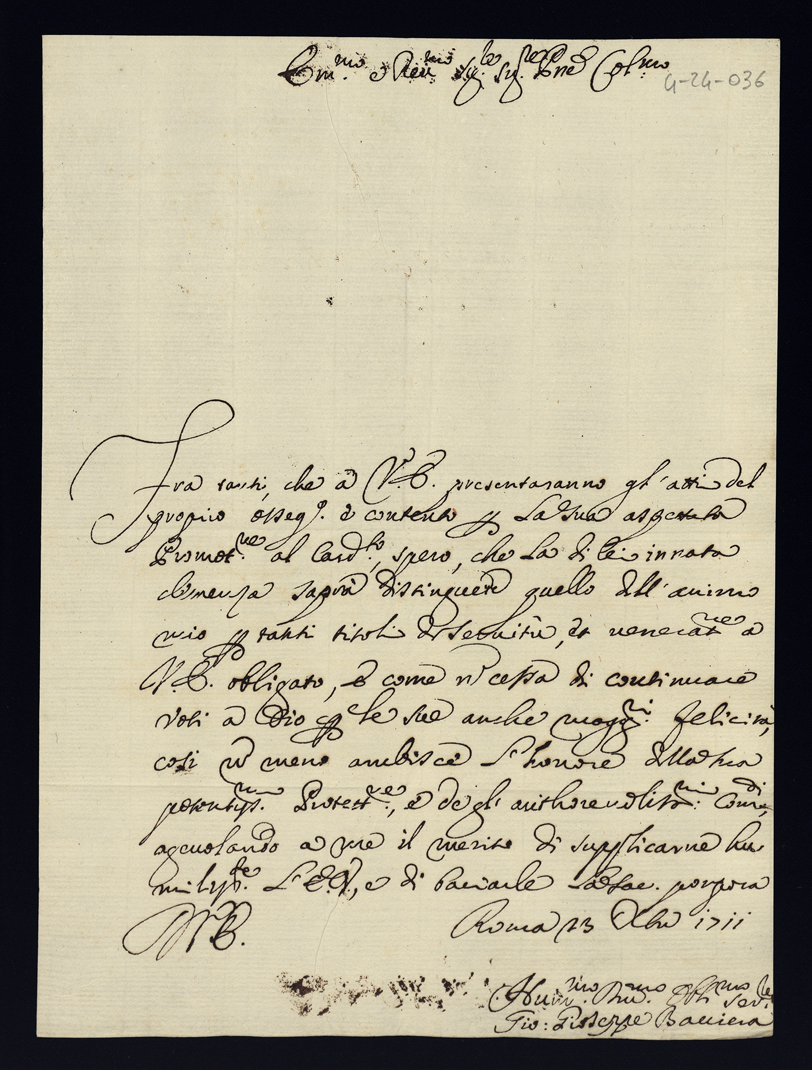 Em.mo e Rev.mo Sig.re Sig.re Pne Col.mo
4-24-036
Fra tanti, che à V.E. presentaranno gl'atti del
proprio osseq.o e contento p la sua aspettata
Promot.ne al Card.to, spero, che la di lei innata
clemenza saprà distinguere quello dell'animo
mio p tanti titoli di servitù, et venerat.ne a
V.E. obligato, e come nō cessa di continuare
voti a Dio p le sue anche magg.ri felicità,
così nō meno ambisce l'honore della sua
potentiss.ma Protett.ne, e degl'authorevoliss.mi Com.di,
agevolando a me il merito di supplicarne hu-
miliss.te l'E.V., e di baciarle la Sac. porpora
Roma 23 Xbre 1711
V.E.
Hum.mo Dev.mo Obl.mo Serv.re
Gio: Giuseppe Baviera